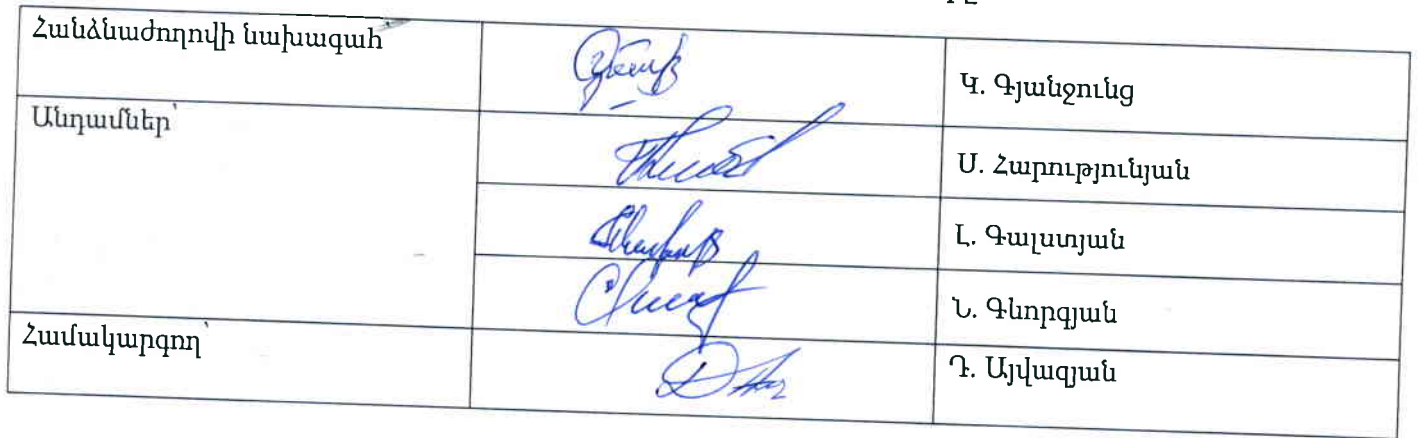 Հանձնաժողովի նախագահ
Կ. Գյանջունց
Անդամներ՝
Ս. Հարությունյան
Լ. Գալստյան
Ն. Գևորգյան
Համակարգող՝
Դ. Այվազյան